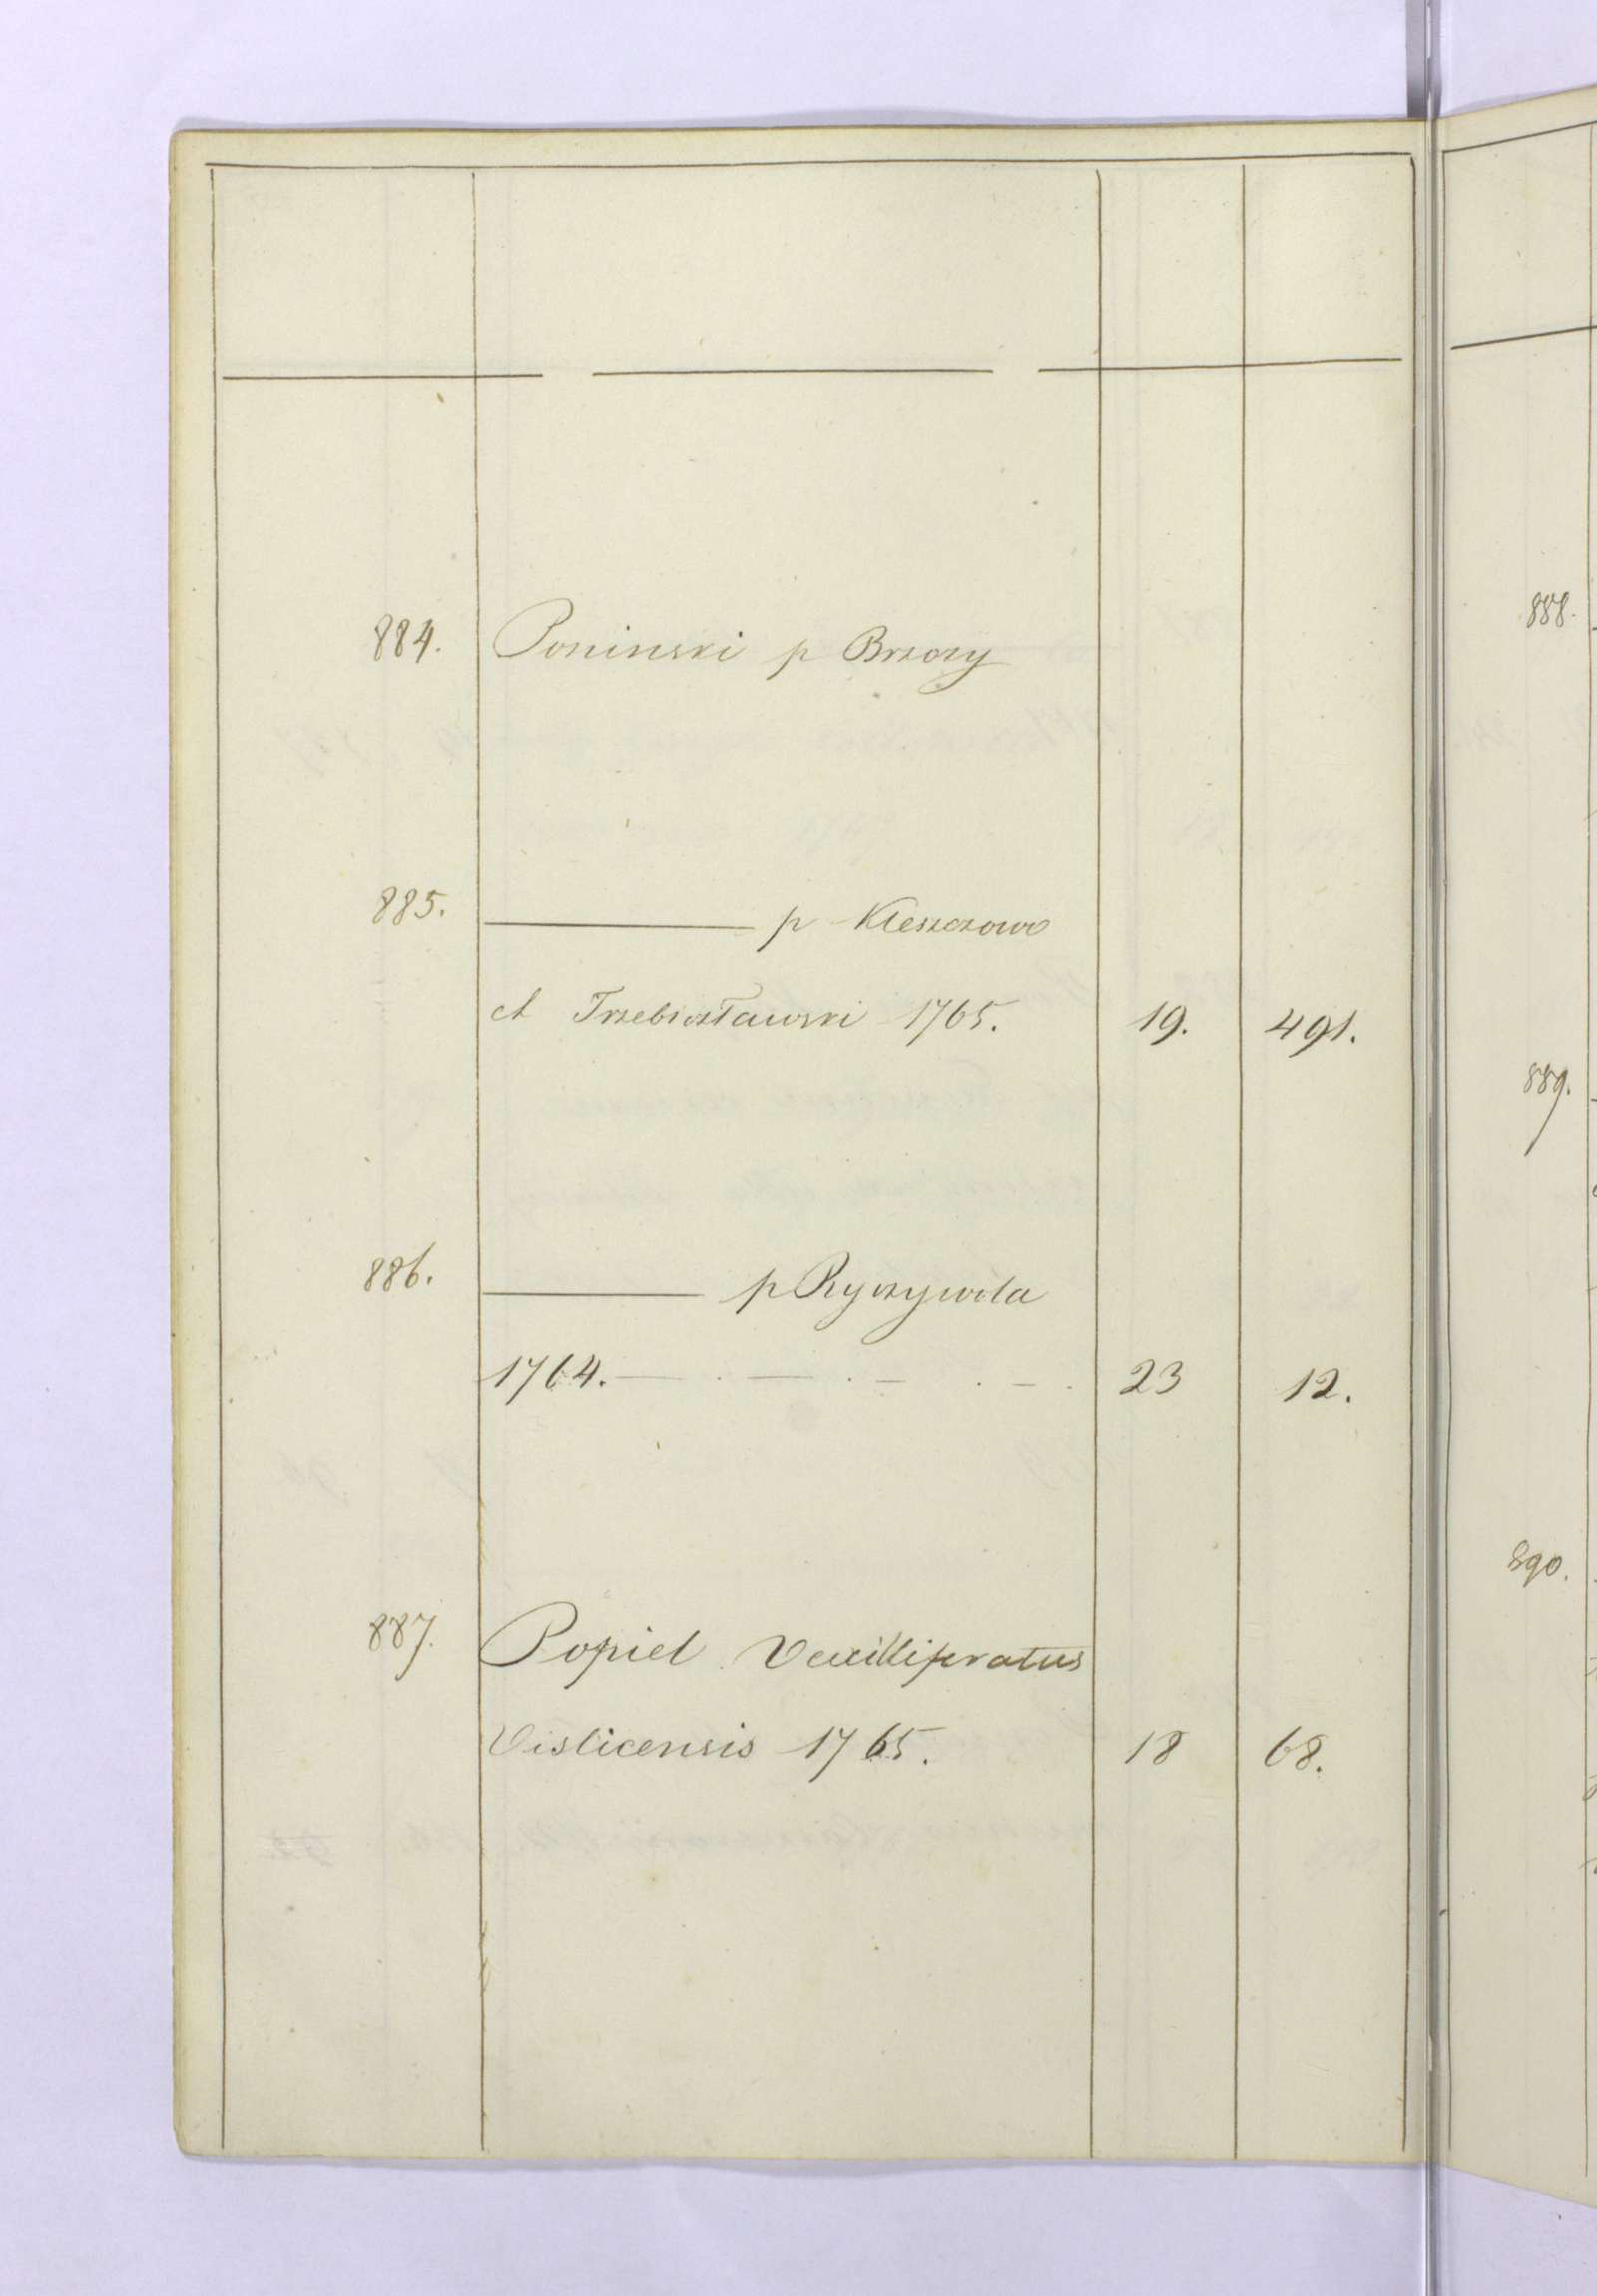 884. Poninski p Brzozy
885. ——— p Kleszczowo
et Trzebiesławski 1765. 19. 491.
886. ——— p Ryczywoła
1764. — . — . — . — . 23 12.
887. Popiel Vexilliferatus
Vislicensis 1765. 18 68.
888.
889.
890.